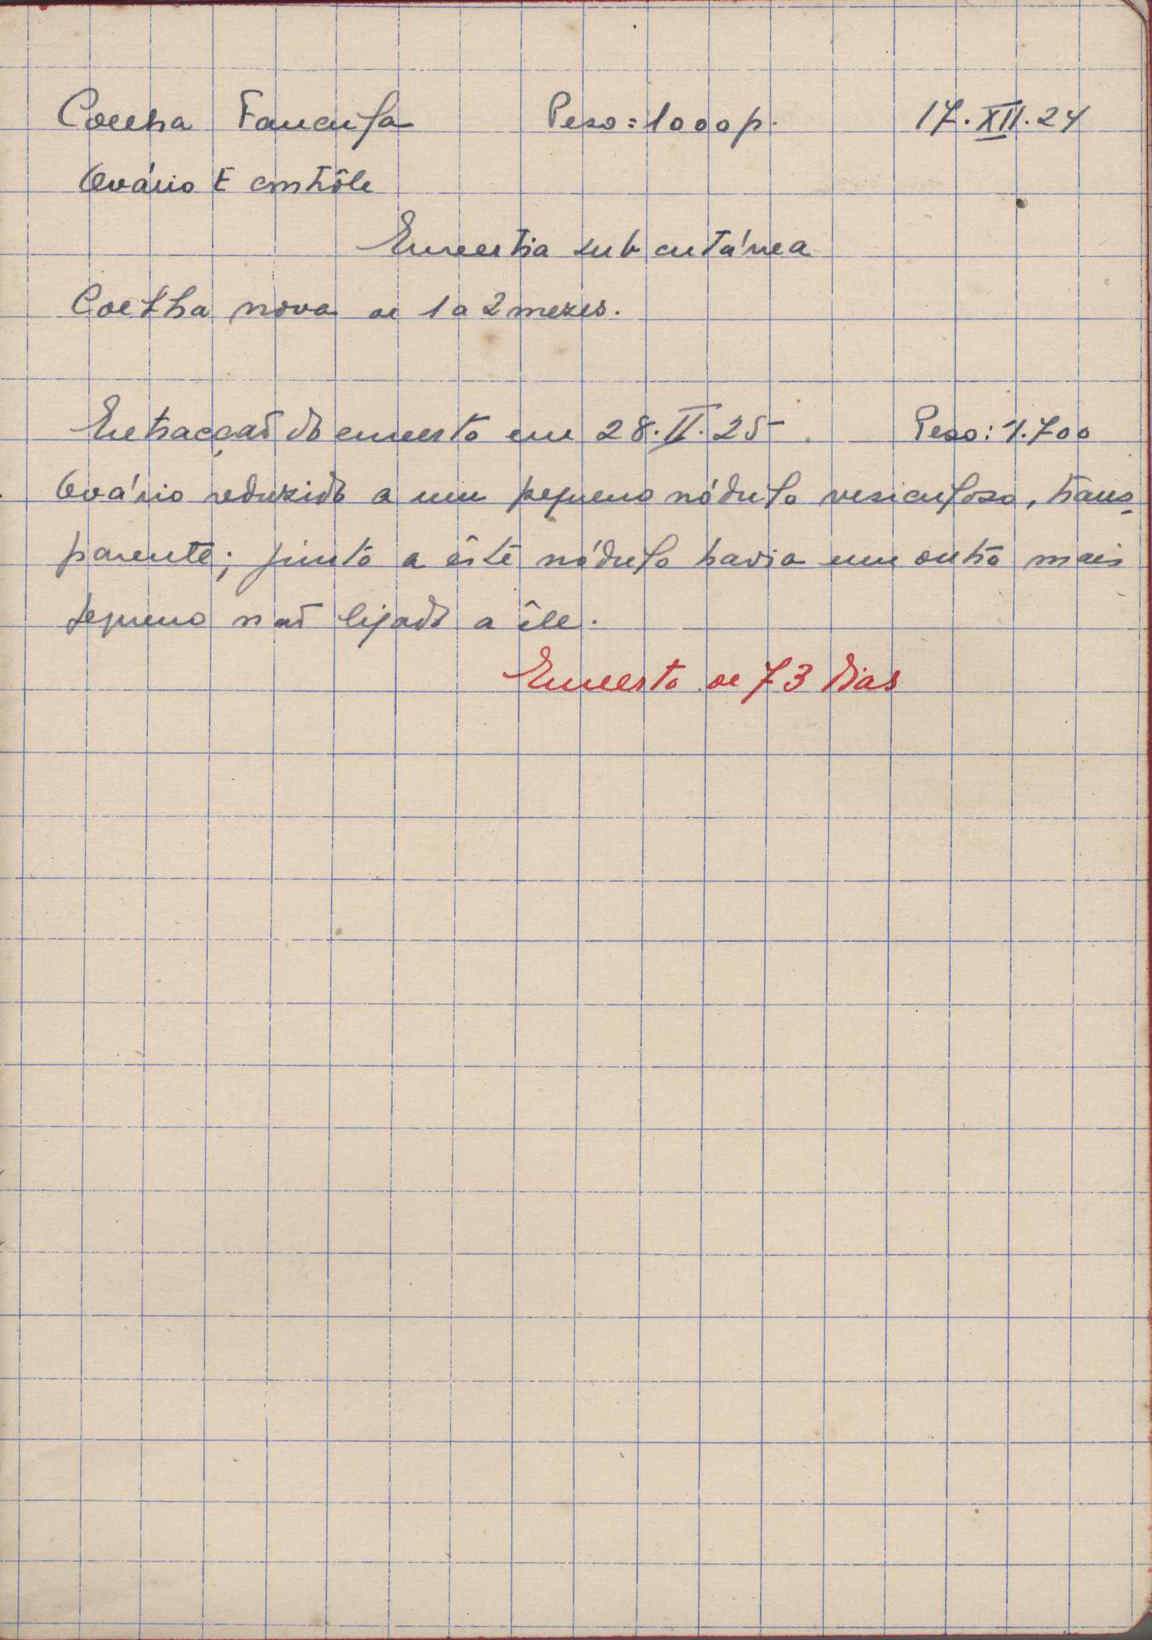 Coelha Faneufa Peso = 1000 g. 17.XII.24
Ovário E contrôle
Enxertia subcutánea
Coelha nova de 1 a 2 mezes.
Extracção do enxerto em 28.II.25. Peso: 1.700
Ovário reduzido a um pequeno nódulo vesiculoso, trans-
parente; junto a êste nódulo havia um outro mais
pequeno não ligado a êle.
Enxerto de 73 dias